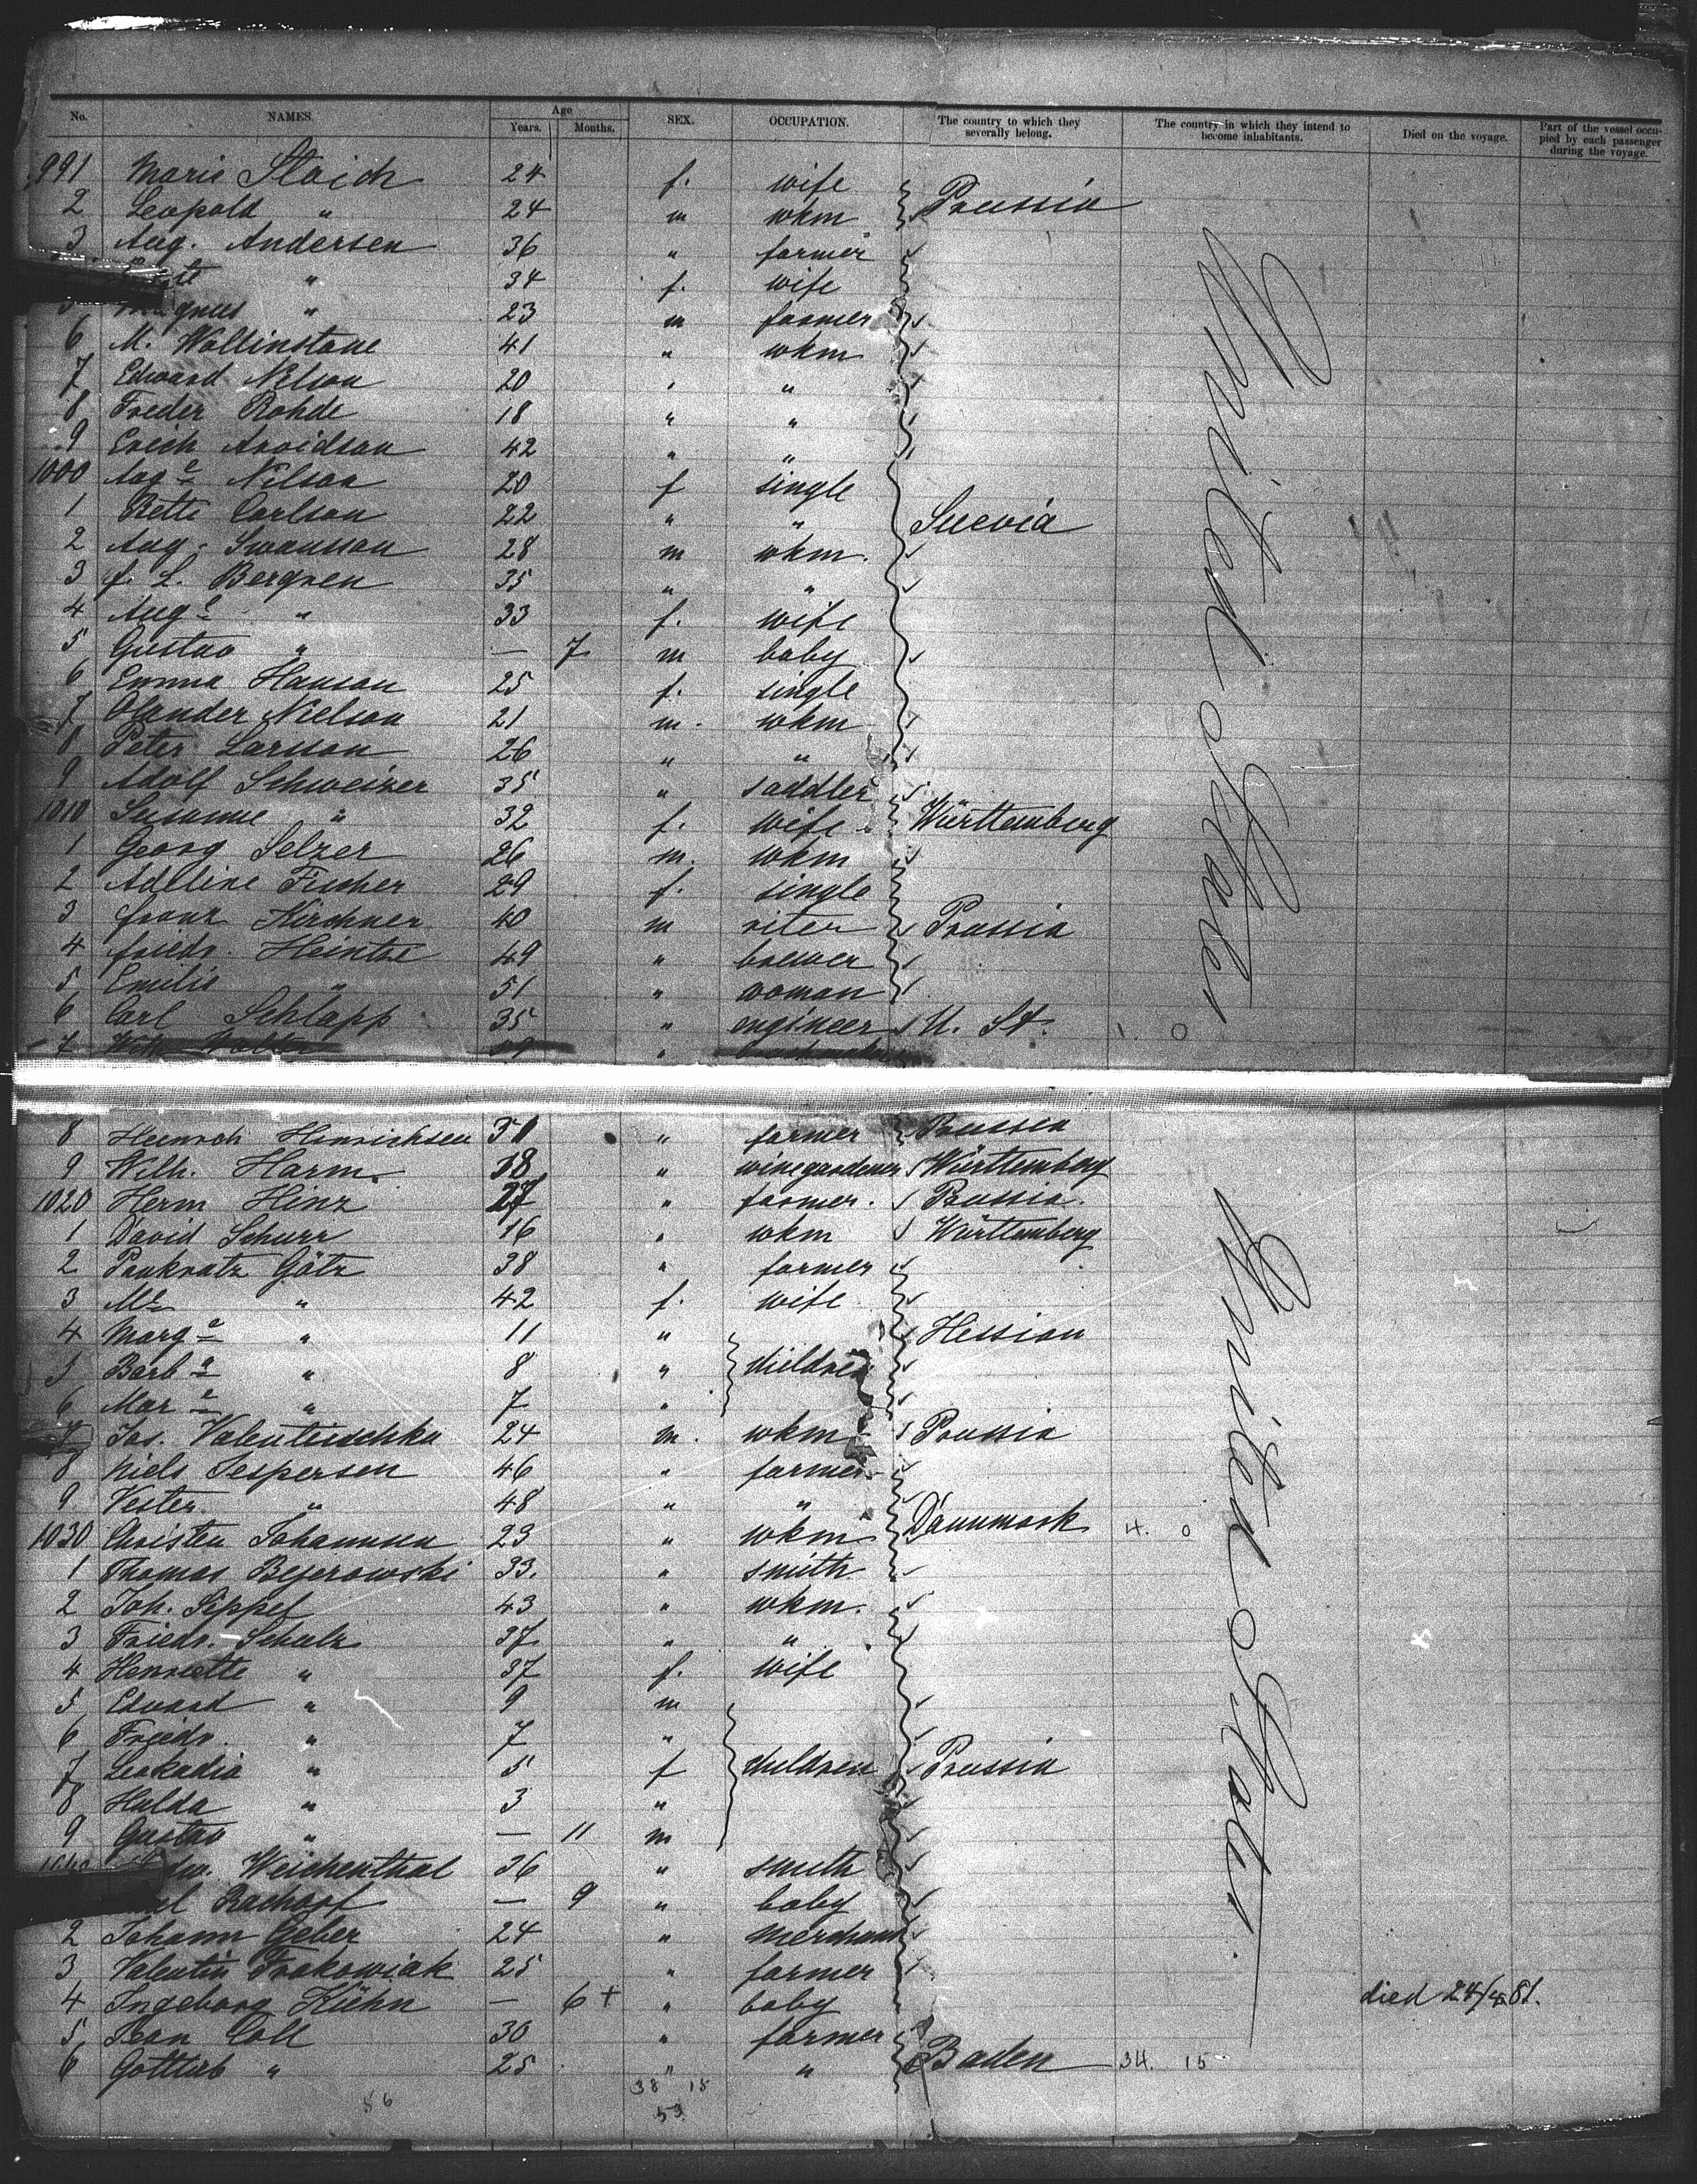 No. NAMES. Age Years. Months. SEX. OCCUPATION. The country to which they severally belong. The country in which they intend to become inhabitants. Died on the voyage. Part of the vessel occupied by each passenger during the voyage.
991 Marie Staich 24 f. wife
2 Leopold " 24 m wkm Prussia
3 Aug. Andersen 36 " farmer
" 34 f. wife
5 Magnus " 23 m farmer
6 M. Wallinstone 41 " wkm
7 Edward Nelson 20 " "
8 Freder Rohde 18 " "
9 Erich Arvidson 42 " "
1000 Aug a Nilson 20 f single
1 Bette Carlson 22 " " Suevia
2 Aug. Swansson 28 m wkm.
3 f. L. Bergren 35 " "
4 Aug a " 33 f. wife
5 Gustav " — 7 m baby
6 Emma Hanson 25 f. single
7 Olander Nielson 21 m. wkm
8 Peter Larsson 26 " "
9 Adolf Schweizer 35 " saddler
1010 Susanne " 32 f. wife Württemberg
1 Georg Selzer 26 m. wkm
2 Adeline Fischer 29 f. single
3 franz Kirchner 40 m Prussia
4 friedr. Heintze 49 " brewer
5 Emilie " 51 " woman
6 Carl Schlapp 35 " engineer U. St. 1. 0
7
United States
8 Heinrch Hinrichsen 31 " farmer Prussia
9 Wilh. Harm. 18 " winegardener Württemberg
1020 Herm Hinz 27 " farmer. Prussia.
1 David Schurr 16 " wkm Württemberg
2 Pankratz Götz 38 " farmer
3 " 42 f. wife
4 Marg a " 11 " Hessian
5 Barb a " 8 " children
6 Mar a " 7 "
7 Jos. Valentischka 24 m. wkm Prussia
8 Niels Jespersen 46 " farmer
9 Vester. " 48 " "
1030 Christen Johannsen 23 " wkm Dannmark 4. 0
1 Thomas Bejerowski 33. " smith
2 Joh. Seppel 43 " wkm.
3 Friedr. Schulz 37 " "
4 Henriette " 37 f. wife
5 Eduard " 9 m
6 Friedr. " 7 "
7 Leokadia " 5 f children Prussia
8 Hulda " 3 "
9 Gustav " — 11 m
Weichenthal 36 " smith
— 9 " baby
2 Johann Geber 24 " merchant
3 Valentin Frakowiak 25 " farmer
4 Ingeborg Kühn — 6 + " baby died 24/4 81.
5 Jean Coll 30 " farmer
6 Gottlieb " 25 " " Baden 34. 15
United States
38 15
56
53